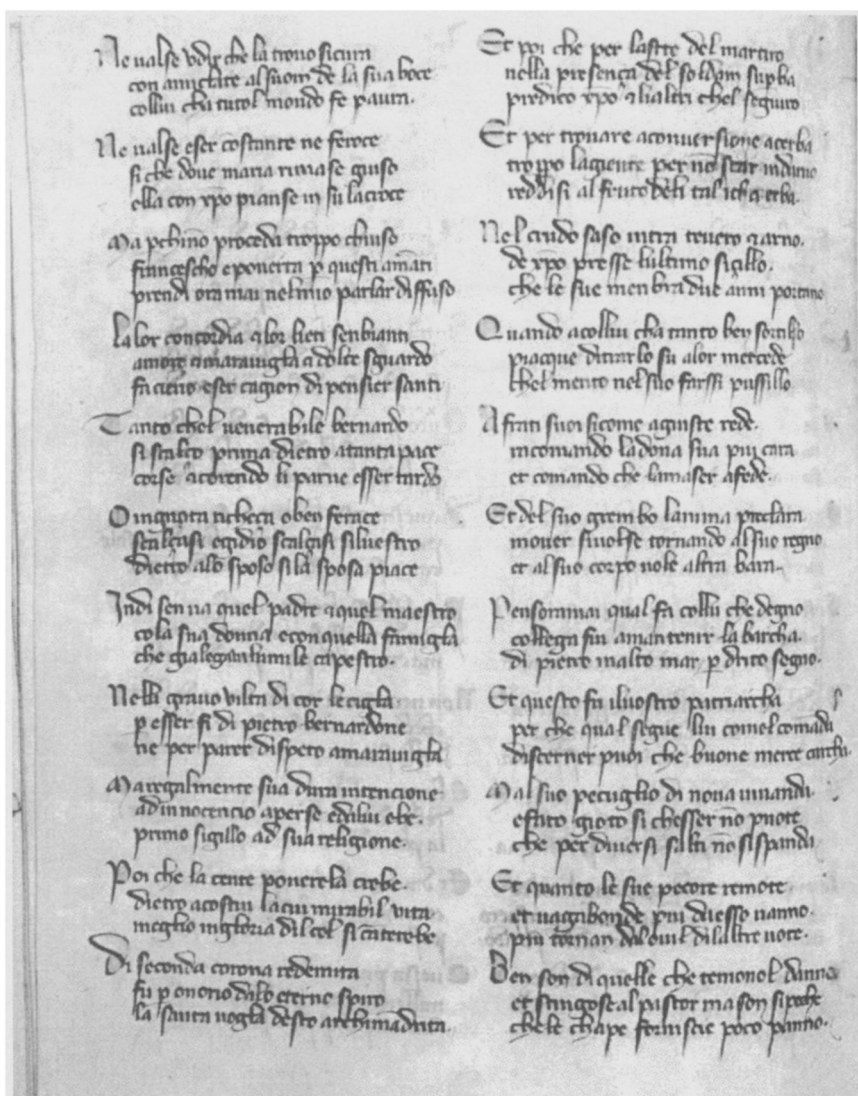 Ne ualse vdir che la trouo sicura
con amiclate al suon de la sua boce
collui cha tutol mondo fe paura.
Ne ualse eser costante ne feroce
si che doue maria rimase giuso
ella con xpo pianse in su la croce
Ma pchino proceda troppo chiuso
francescho e pouerta p questi amati
prendi ora mai nel mio parlar diffuso
La lor concordia a lor lieti senbianti
amore a marauiglia a dolce sguardo
facieno eser cagion di pensier santi
Tanto chel uenerabile bernardo
si scalco prima dietro a tanta pace
corse acorendo li parue esser tardo
O ingnota richeca o ben ferace
scalcasi egidio scalcasi siluestro
dietro alo sposo si la sposa piace
Indi sen ua quel padre a quel maestro
cola sua donna e con quella famiglia
che gia legaua lumile capestro.
Nelli grauo vilta di cor le ciglia
p esser fi di pietro bernardone
ne per parer dispeto a marauiglia
Ma regalmente sua dura intencione
ad innocencio aperse e da lui ebe.
primo sigillo ad sua religione.
Poi che la cente pouerela crebe.
dietro a costui la cui mirabil vita
meglio in gloria dil cel si canterebe
Di seconda corona redemita
fu p onorio dalo eterno spiro
la santa uoglia desto archimadrita.
Et poi che per la sete del martiro
nella presenca del soldam superba
predico xpo a li altri chel seguiro
Et per trouare a conuersione acerba
troppo la giente per no star indarno
reddisi al fruto deli talicha erba.
Nel crudo saso intra teuero a arno.
de xpo presse lultimo sigillo.
che le sue menbra due anni portano
Quando a collui cha tanto ben sortillo
piacque di trarlo su a lor mercede
chel merito nel suo farssi pussillo
A frati suoi sicome a giuste rede.
incomando la dona sua piu cara
et comando che lamaser a fede.
Et del suo grembo lanima preclara
mouer si uolse tornando al suo regno
et al suo corpo nole altra bara.
Pensoramai qual fu collui che degno
collega fui a mantenir la barcha.
di pietro in alto mar p drito segno.
Et questo fu il uostro patriarcha
per che qual segue lui comel comada
discerner puoi che buone merce carcha.
Mal suo peculglio di noua uiuanda.
e fato gioto si chesser no puote
che per diuersi salti no si spanda
Et quanto le sue pecore remote
et uagabonde piu da esso uanno.
piu tornan dal ouil di latte uote.
Ben son di quelle che temonol danno
et stringose al pastor ma son si poche
che le chape forniscie poco panno.